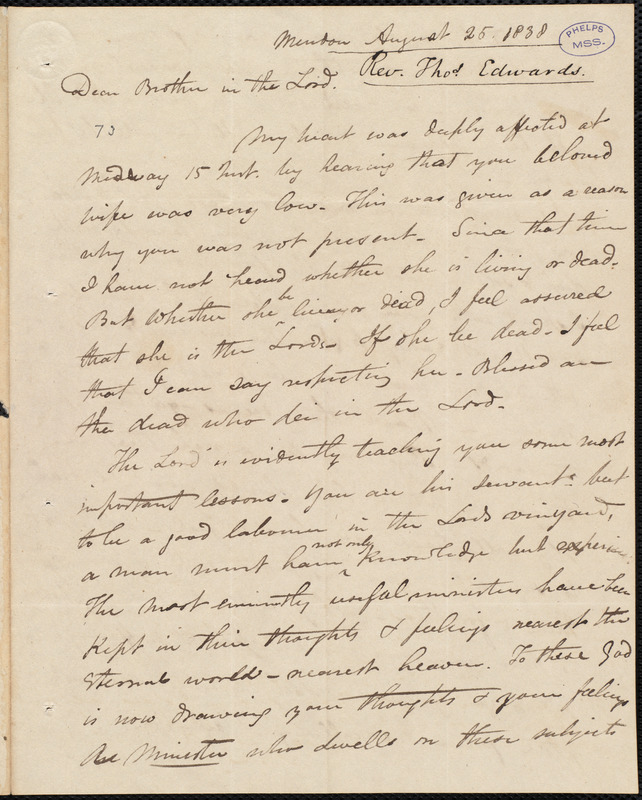 Mendon August 25. 1838
PHELPS
MSS.
Rev. Thos. Edwards.
Dear Brother in the Lord.
73
My heart was deeply affected at
Medway 15 inst. by hearing that you beloved
wife was very low. This was given as a reason
why you was not present. Since that time
I have not heard whether she is living or dead.
But whether she be living or dead, I feel assured
that she is the Lords. If she be dead. I feel
that I can say respecting her. Blessed are
the dead who die in the Lord.
The Lord is evidently teaching you some most
important lessons. You are his servant: but
to be a good labourer in the Lords vinyard,
a man must have not only knowledge but
The most eminently useful ministers have been
kept in their thoughts & feelings nearest the
Eternal world - nearest heaven. To these God
is now drawing your thoughts & your feelings
Minister who dwells on these subjects